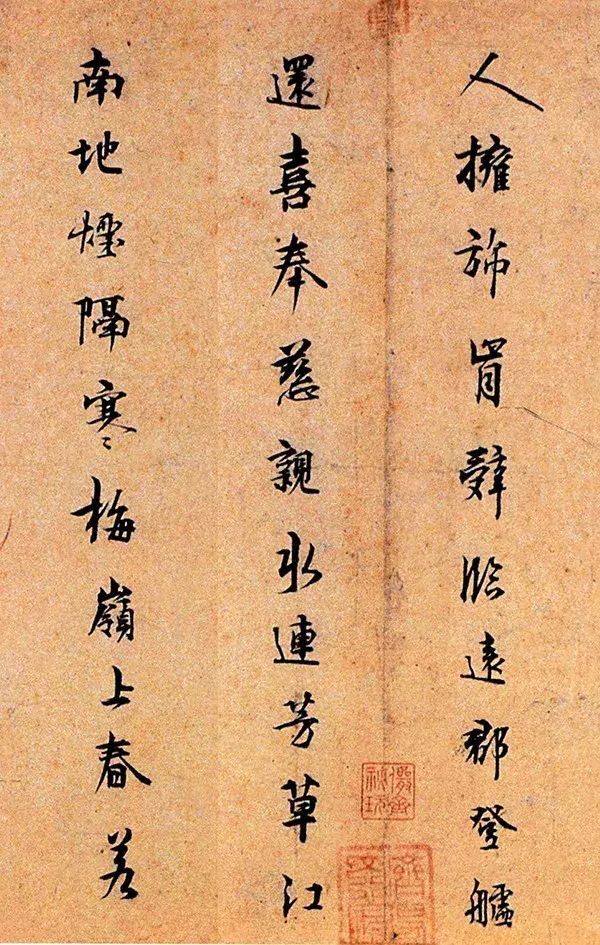 人擁旆肯辭臨遠郡登艫
還喜奉慈親水連芳草江
南地煙隔寒梅嶺上春若